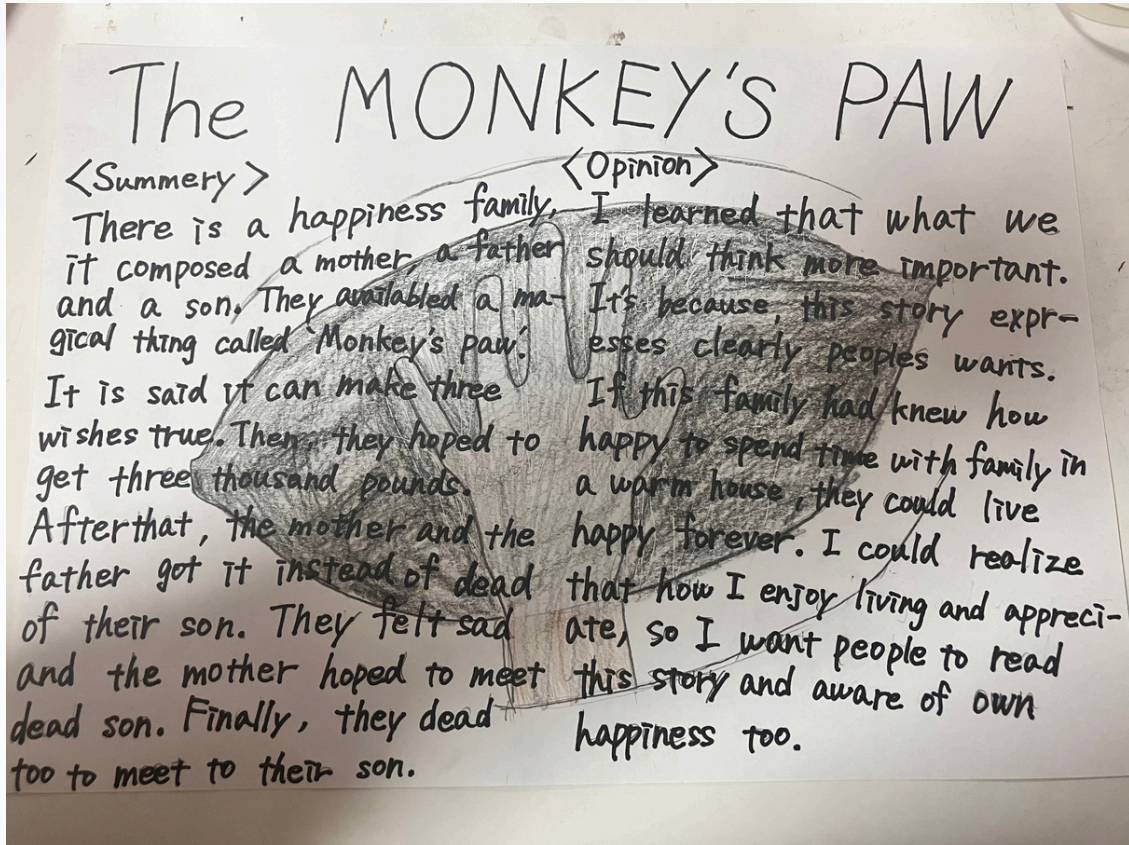 The MONKEY'S PAW
<Summery>
There is a happiness family,
it composed a mother, a father
and a son. They availabled a ma-
gical thing called 'Monkey's paw'.
It is said it can make three
wishes true. Then, they hoped to
get three thousand pounds.
After that, the mother and the
father got it instead of dead
of their son. They felt sad
and the mother hoped to meet
dead son. Finally, they dead
too to meet to their son.
<Opinion>
I learned that what we
should think more important.
It's because, this story expr-
esses clearly peoples wants.
If this family had knew how
happy to spend time with family in
a warm house, they could live
happy forever. I could realize
that how I enjoy living and appreci-
ate, so I want people to read
this story and aware of own
happiness too.